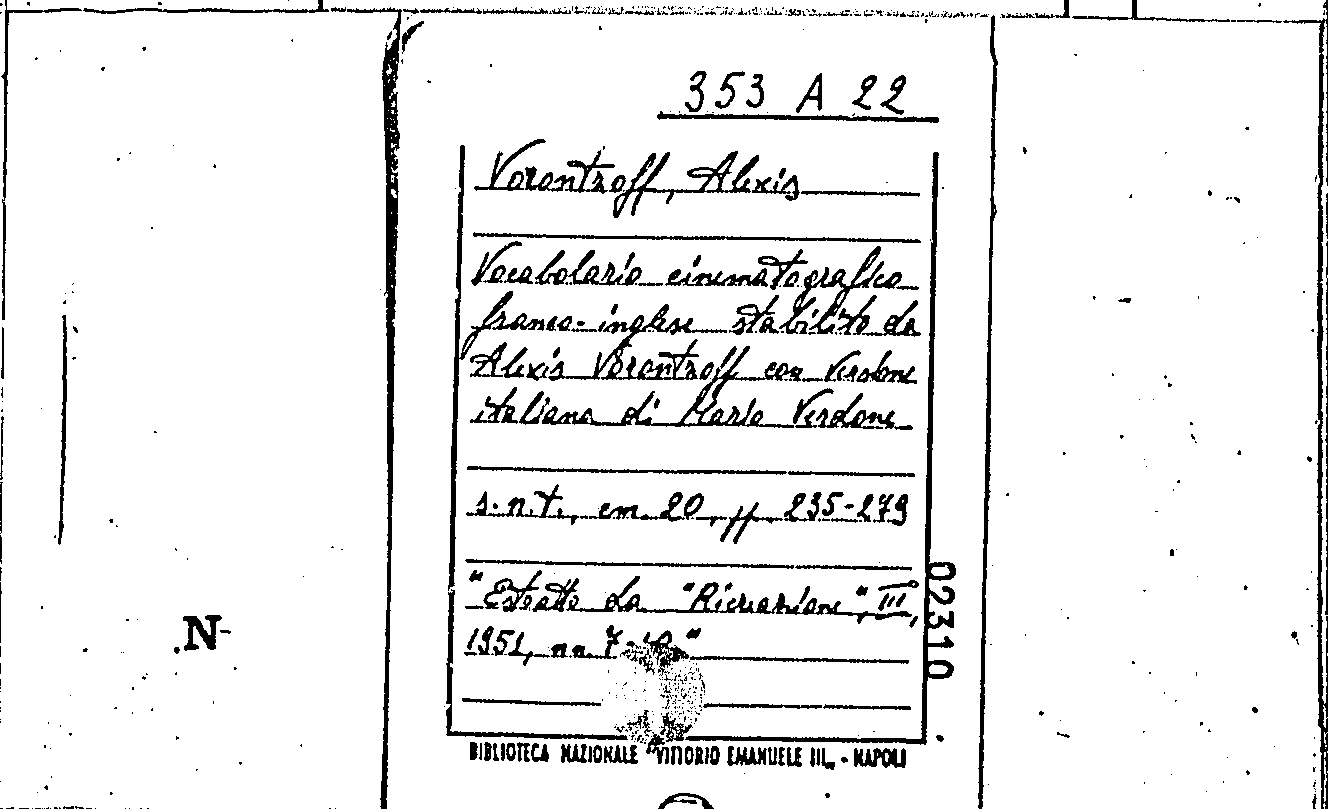 353 A 22
Vorontzoff, Alexis
Vocabolario cinematografico
franco-inglese stabilito da
Alexis Vorontzoff con versione
italiana di Mario Verdone
s.n.t., cm. 20, pp. 235-279
"Estratto da "Ricreazione", III,
1951, nn. 7-
02310
.N-
BIBLIOTECA NAZIONALE "VITTORIO EMANUELE III„ - NAPOLI